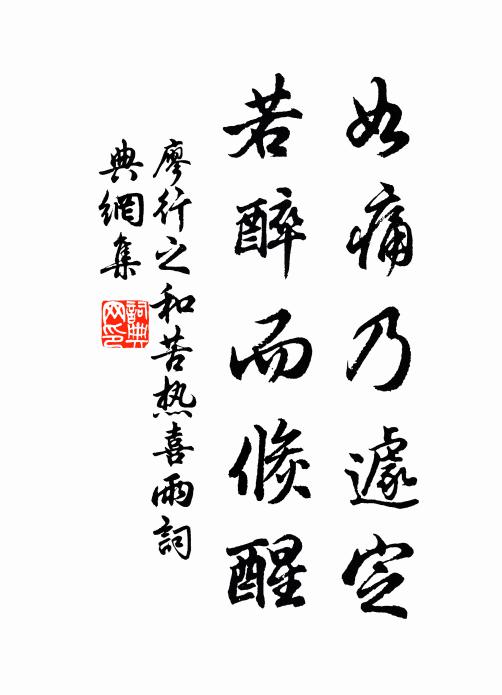 如痛乃遽定
若醉而倏醒
廖行之和苦热喜雨詞
典網集
詞典网印